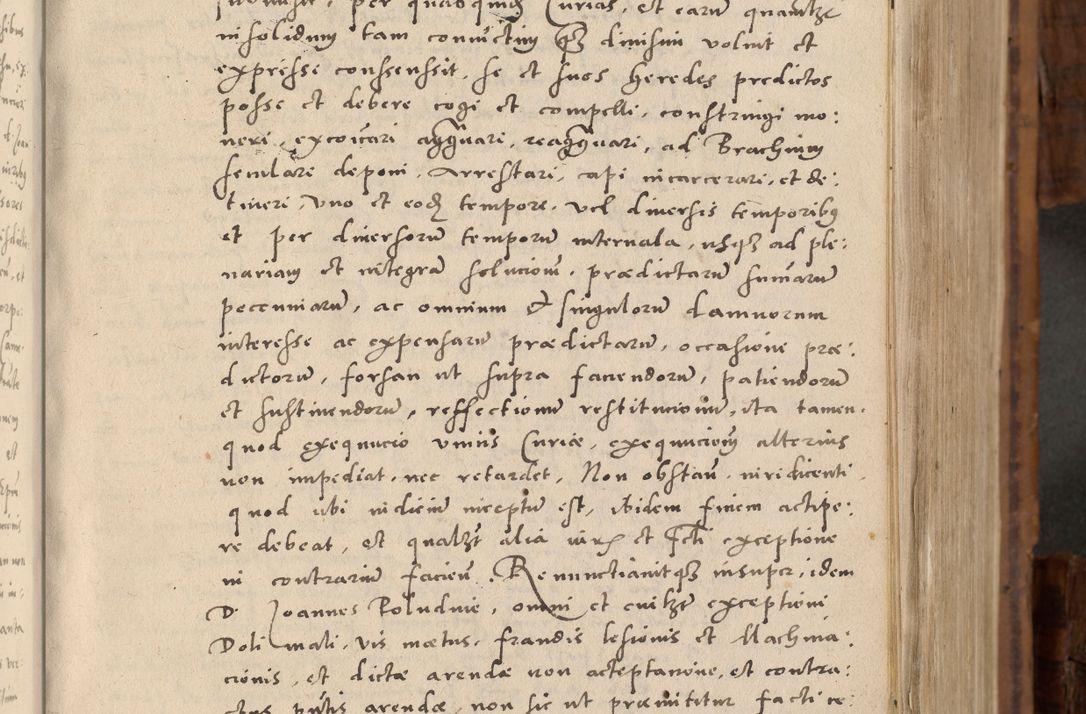 per quascumque Curias, et earum quamlibet
in solidum tam coniunctim quam diuisim voluit et
expresse consenssit, se et suos heredes predictos
posse et debere cogi et compelli, constringi mo:
neri, excoicari aggrauari, reaggrauari, ad Brachium
seculare deponi, Arrestari, capi incarcerari, et de:
tineri, Vno et eodem tempore, vel diuersis temporibus
et per diuersorum temporum interuala, usque ad ple:
nariam et integram solucionem, prædictarum summarum
pecuniarum, ac omnium et singulorum damnorum
interesse ac expensarum prædictarum, occasione præ:
dictorum, forsan ut supra faciendorum, patiendorum
et sustinendorum, reffectionem restitucionem, ita tamen
quod exequucio vnius Curiæ, exequucionem alterius
non impediat, nec retardet, Non obstante iuri dicenti
quod ubi iudicium inceptum est, ibidem finem accipe:
re debeat, et qualibet alia iuris et facti exceptione
in contrarium facien. Renunctiauitque insuper, idem
D. Joannes Poludnie, omni et cuilibet exceptioni
Doli mali, vis mætus, fraudis lesionis et Machina:
cionis, et dictæ arendæ non acceptacione, et contra:
ctus arendæ, non sic ut præmittitur facti re: